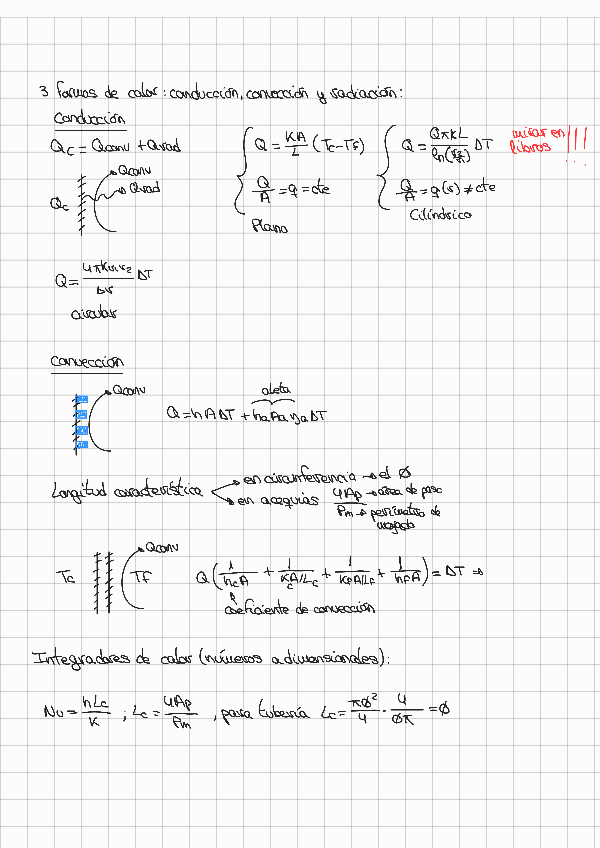 3 formas de calor: conducción, convección y radiación:
Conducción
Qc = Qconv + Qrad
Q = KA/L (Tc - Tf)
Q = QπKL/ln(r2/r1) ΔT
mirar en libros !!!
Qconv
Qrad
Qc
Q/A = q = cte
Q/A = q(r) ≠ cte
Plano
Cilíndrico
Q = 4πKr1r2/Δr ΔT
circular
Convección
Qconv
aleta
Q = hAΔT + haAaηaΔT
Longitud característica → en circunferencia → el Ø
→ en acequias 4Ap/Pm → área de paso
→ perímetro de mojado
Tc Tf Qconv
Q (1/hcA + 1/KcA/Lc + 1/KfA/Lf + 1/hfA) = ΔT →
coeficiente de convección
Integradores de calor (números adimensionales):
Nu = hLc/K ; Lc = 4Ap/Pm , para tubería Lc = πØ²/4 · 4/Øπ = Ø